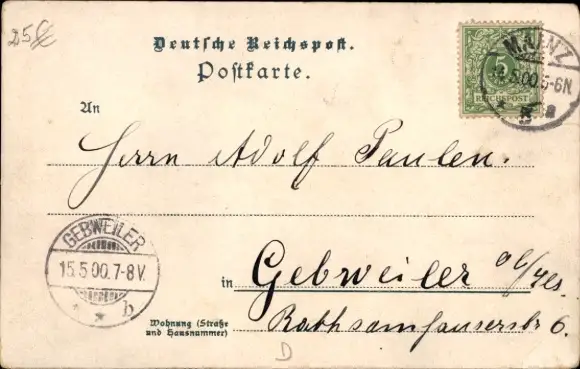 25
Deutsche Reichspost.
Postkarte.
MAINZ
5.00.5-6N.
a
5
REICHSPOST
An
Herrn Adolf Paulen.
GEBWEILER
15.5.00.7-8V.
* b
in Gebweiler
Wohnung (Straße
und Hausnummer)
6.
D